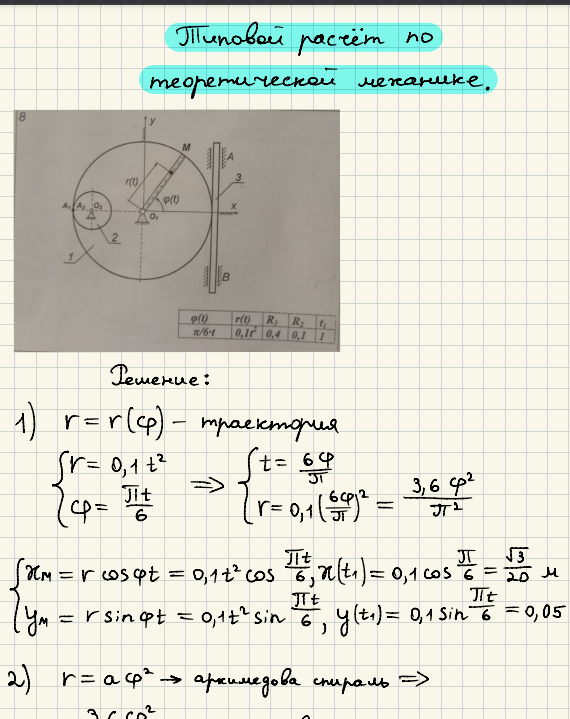 Типовой расчёт по
теоретической механике.
8
y
M
A
r(t)
3
φ(t)
A₁ A₂ O₂
x
O₁
2
1
B
φ(t) r(t) R₁ R₂ t₁
π/6·t 0,1t² 0,4 0,1 1
Решение:
1) r = r(φ) – траектория
{ r = 0,1 t² => { t = 6φ/π
φ = πt/6 r = 0,1(6φ/π)² = 3,6 φ²/π²
{ xм = r cos φt = 0,1t² cos πt/6, x(t₁) = 0,1 cos π/6 = √3/20 м
yм = r sin φt = 0,1t² sin πt/6, y(t₁) = 0,1 sin πt/6 = 0,05
2) r = a φ² → архимедова спираль =>